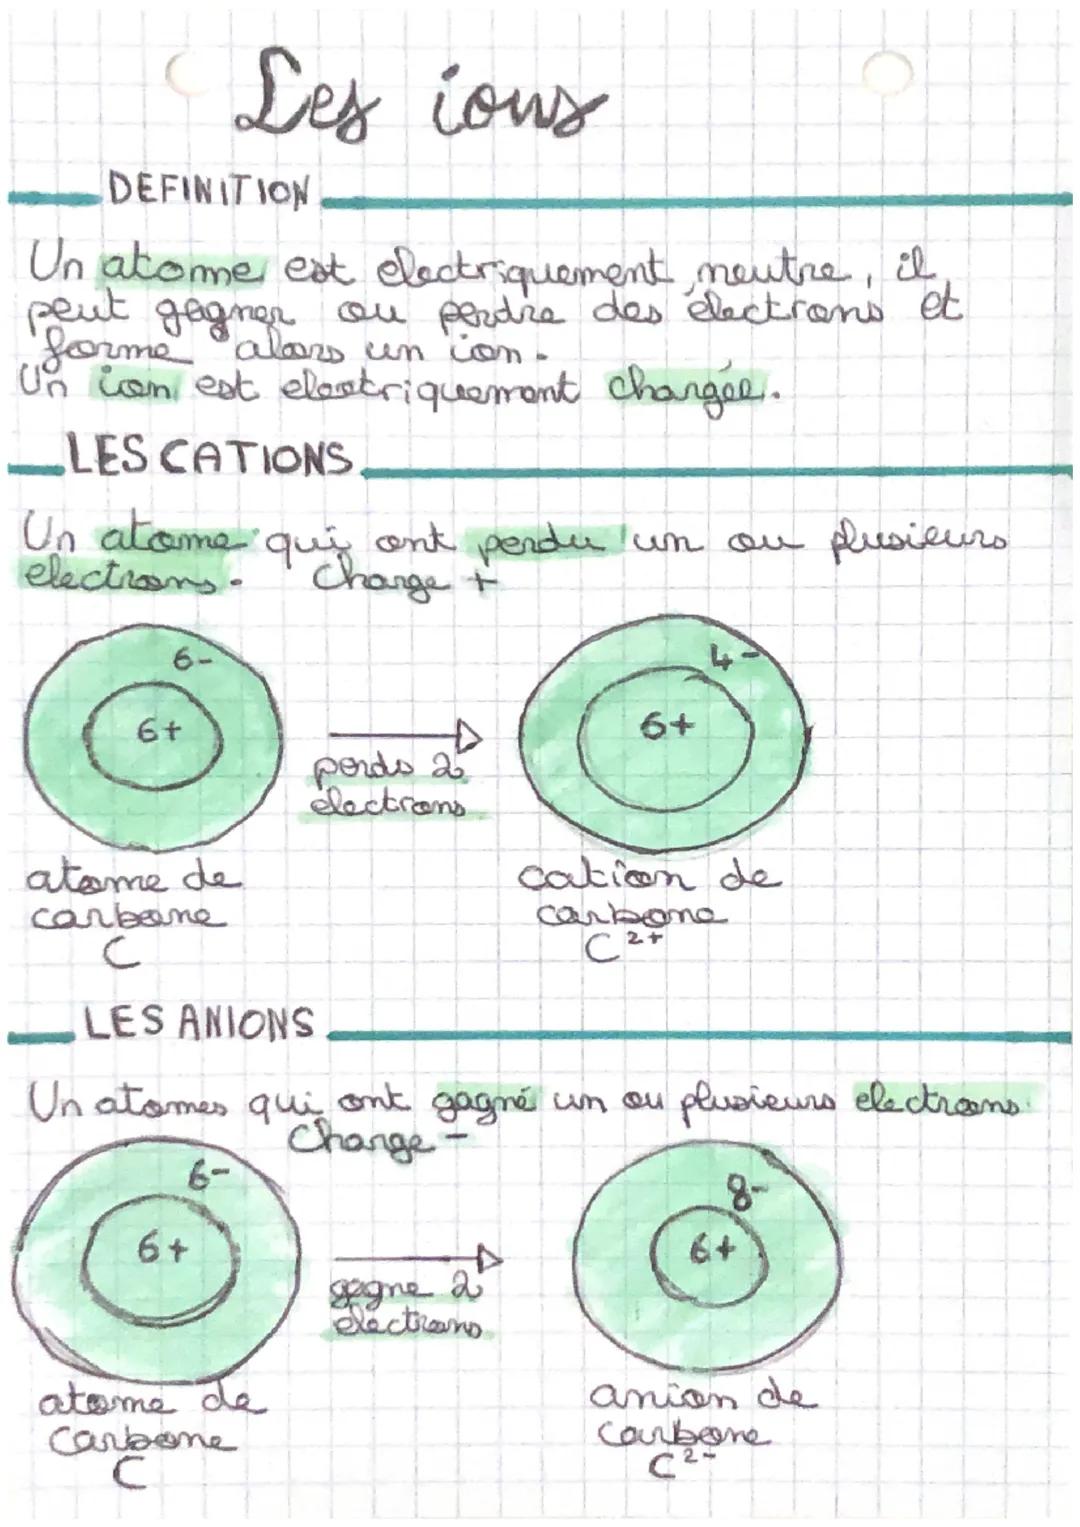 Les ions
DEFINITION
Un atome est electriquement neutre, il
peut gagner ou perdre des électrons et
forme alors un ion.
Un ion est electriquement chargée.
LES CATIONS
Un atome qui ont perdu un ou plusieurs
electrons. Charge +
6-
6+
perds 2
electrons
4-
6+
atome de
carbone
C
cation de
carbone
C²⁺
LES ANIONS
Un atomes qui ont gagné un ou plusieurs electrons.
Charge -
6-
6+
gagne 2
electrons
8-
6+
atome de
carbone
C
anion de
carbone
C²⁻